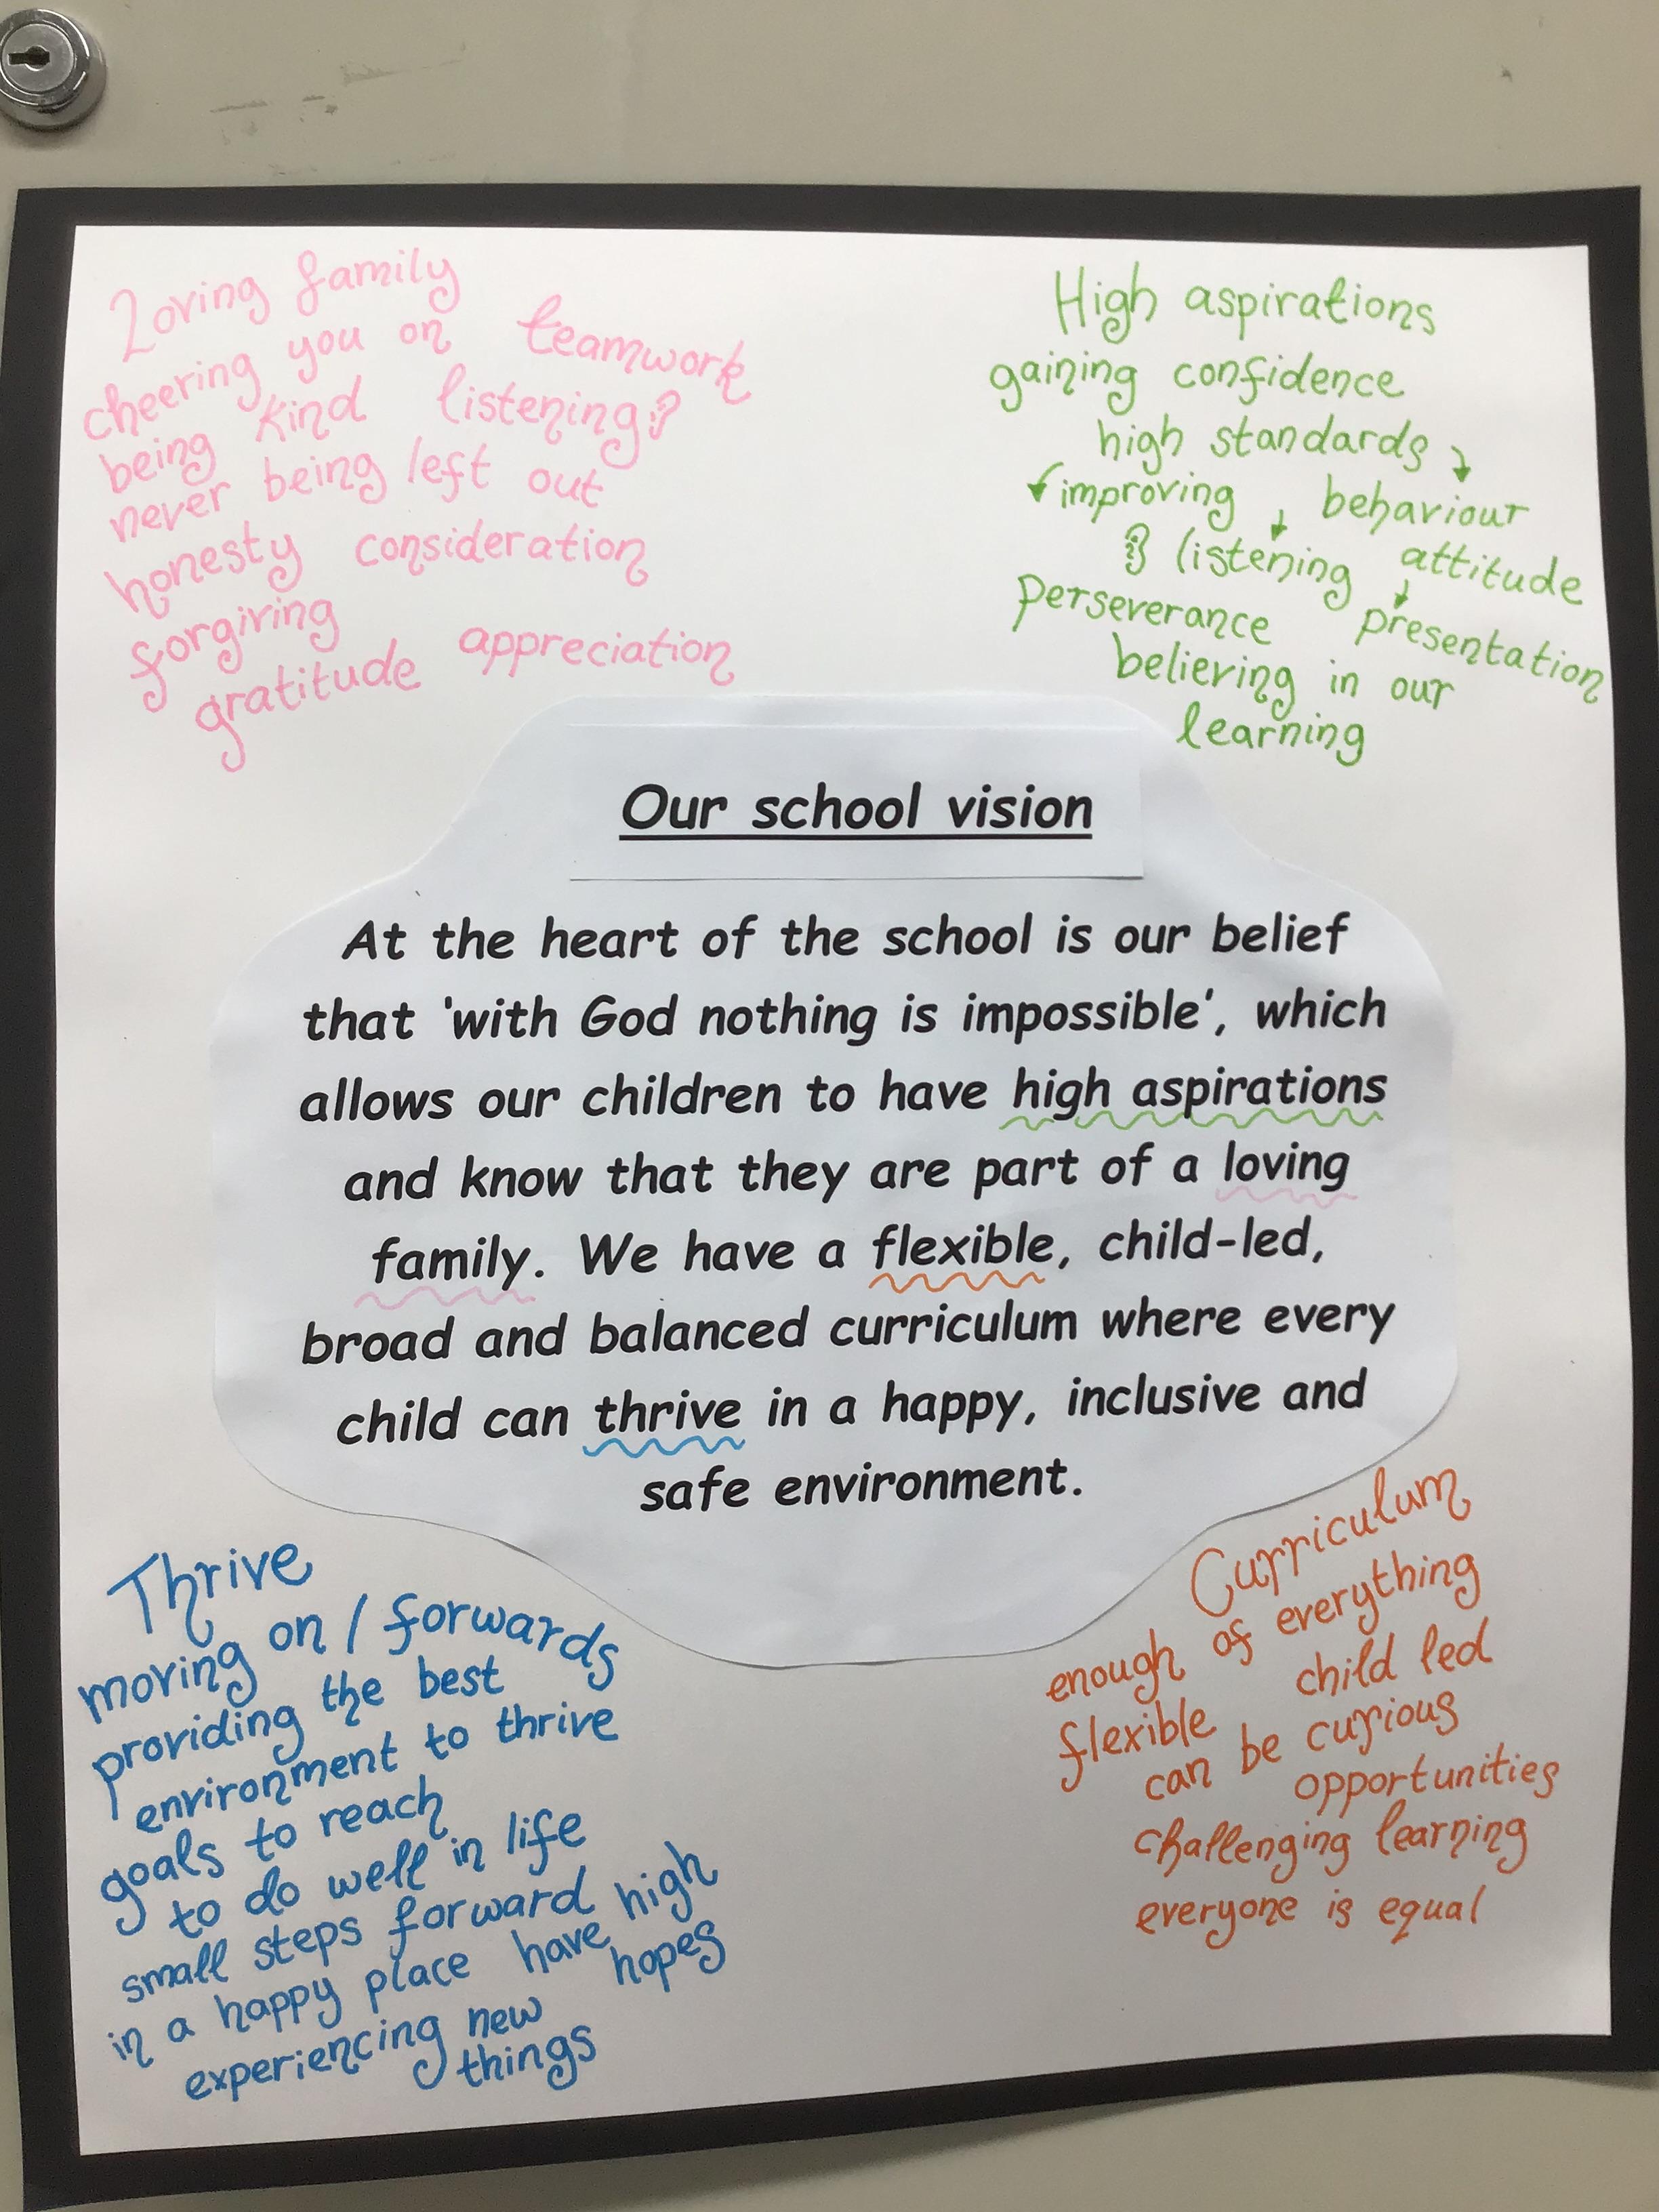 Loving family
cheering you on teamwork
being kind listening
never being left out
honesty consideration
forgiving
gratitude appreciation
High aspirations
gaining confidence
high standards
improving behaviour
listening attitude
perseverance presentation
believing in our
learning
Our school vision
At the heart of the school is our belief
that 'with God nothing is impossible', which
allows our children to have high aspirations
and know that they are part of a loving
family. We have a flexible, child-led,
broad and balanced curriculum where every
child can thrive in a happy, inclusive and
safe environment.
Thrive
moving on / forwards
providing the best
environment to thrive
goals to reach
to do well in life
small steps forward
in a happy place have high
hopes
experiencing new
things
Curriculum
enough of everything
flexible child led
can be curious
opportunities
challenging learning
everyone is equal